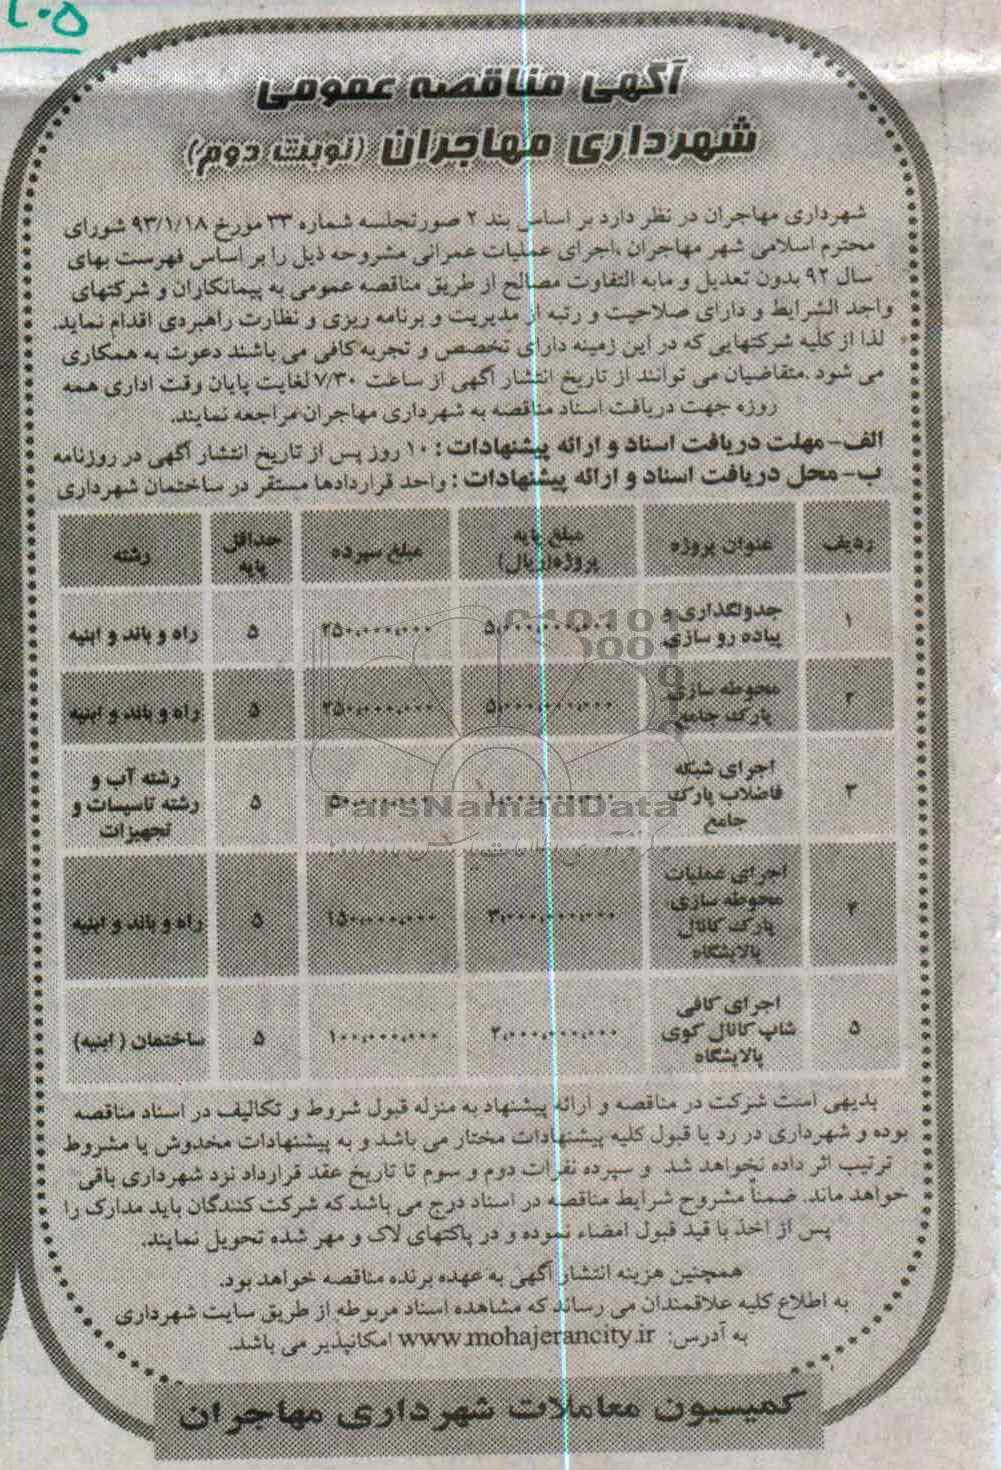 ۲۰۵
آگهی مناقصه عمومی
شهرداری مهاجران (نوبت دوم)
شهرداری مهاجران در نظر دارد بر اساس بند ۲ صورتجلسه شماره ۳۳ مورخ ۹۳/۱/۱۸ شورای
محترم اسلامی شهر مهاجران ،اجرای عملیات عمرانی مشروحه ذیل را بر اساس فهرست بهای
سال ۹۲ بدون تعدیل و مابه التفاوت مصالح از طریق مناقصه عمومی به پیمانکاران و شرکتهای
واجد الشرایط و دارای صلاحیت و رتبه از مدیریت و برنامه ریزی و نظارت راهبردی اقدام نماید.
لذا از کلیه شرکتهایی که در این زمینه دارای تخصص و تجربه کافی می باشند دعوت به همکاری
می شود .متقاضیان می توانند از تاریخ انتشار آگهی از ساعت ۷/۳۰ لغایت پایان وقت اداری همه
روزه جهت دریافت اسناد مناقصه به شهرداری مهاجران مراجعه نمایند.
الف- مهلت دریافت اسناد و ارائه پیشنهادات : ۱۰ روز پس از تاریخ انتشار آگهی در روزنامه
ب- محل دریافت اسناد و ارائه پیشنهادات : واحد قراردادها مستقر در ساختمان شهرداری
ردیف عنوان پروژه مبلغ پایه پروژه(ریال) مبلغ سپرده حداقل پایه رشته
۱ جدولگذاری و پیاده رو سازی ۵،۰۰۰،۰۰۰،۰۰۰ ۲۵۰،۰۰۰،۰۰۰ ۵ راه و باند و ابنیه
۲ محوطه سازی پارک جامع ۵،۰۰۰،۰۰۰،۰۰۰ ۲۵۰،۰۰۰،۰۰۰ ۵ راه و باند و ابنیه
۳ اجرای شبکه فاضلاب پارک جامع ۱،۰۰۰،۰۰۰،۰۰۰ ۵۰،۰۰۰،۰۰۰ ۵ رشته آب و رشته تاسیسات و تجهیزات
۴ اجرای عملیات محوطه سازی پارک کانال پالایشگاه ۳،۰۰۰،۰۰۰،۰۰۰ ۱۵۰،۰۰۰،۰۰۰ ۵ راه و باند و ابنیه
۵ اجرای کافی شاپ کانال کوی پالایشگاه ۲،۰۰۰،۰۰۰،۰۰۰ ۱۰۰،۰۰۰،۰۰۰ ۵ ساختمان ( ابنیه)
ParsNamadData
بدیهی است شرکت در مناقصه و ارائه پیشنهاد به منزله قبول شروط و تکالیف در اسناد مناقصه
بوده و شهرداری در رد یا قبول کلیه پیشنهادات مختار می باشد و به پیشنهادات مخدوش یا مشروط
ترتیب اثر داده نخواهد شد و سپرده نفرات دوم و سوم تا تاریخ عقد قرارداد نزد شهرداری باقی
خواهد ماند. ضمناً مشروح شرایط مناقصه در اسناد درج می باشد که شرکت کنندگان باید مدارک را
پس از اخذ با قید قبول امضاء نموده و در پاکتهای لاک و مهر شده تحویل نمایند.
همچنین هزینه انتشار آگهی به عهده برنده مناقصه خواهد بود.
به اطلاع کلیه علاقمندان می رساند که مشاهده اسناد مربوطه از طریق سایت شهرداری
به آدرس: www.mohajerancity.ir امکانپذیر می باشد.
کمیسیون معاملات شهرداری مهاجران